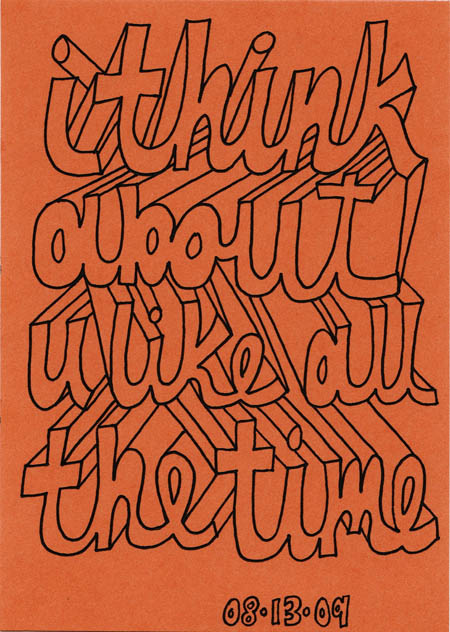 i think
about
u like all
the time
08·13·09